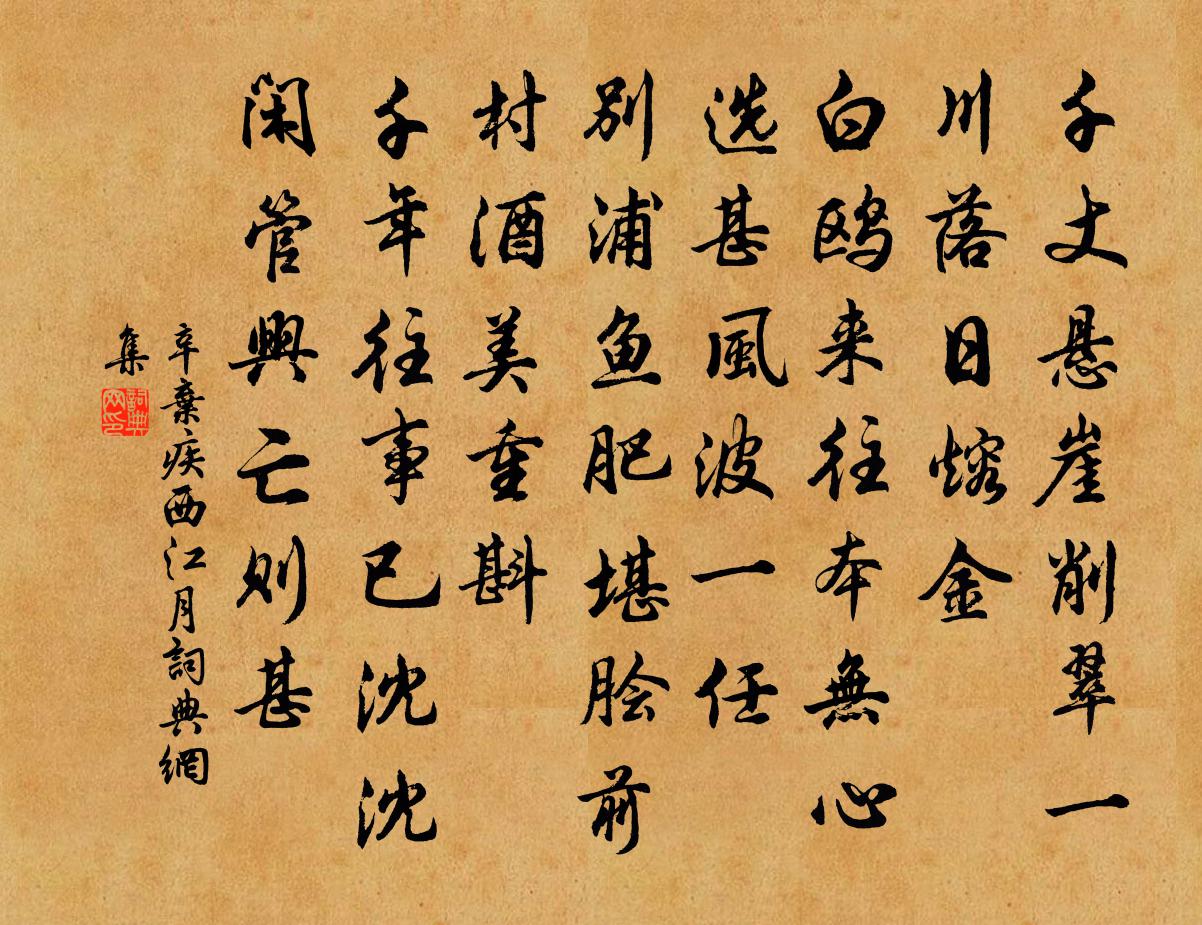 千丈悬崖削翠一
川落日熔金
白鸥来往本無心
选甚風波一任
别浦鱼肥堪脍前
村酒美重斟
千年往事已沈沈
闲管興亡则甚
辛棄疾西江月詞典網
集
詞典网印